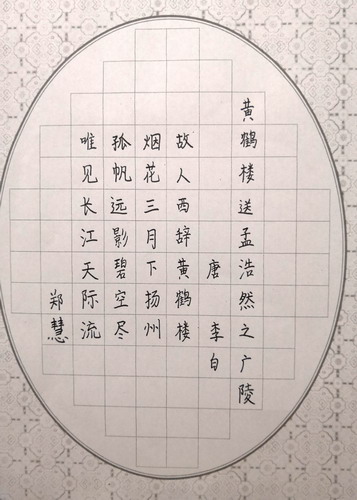 黄鹤楼送孟浩然之广陵
唐 李白
故人西辞黄鹤楼
烟花三月下扬州
孤帆远影碧空尽
唯见长江天际流
郑慧